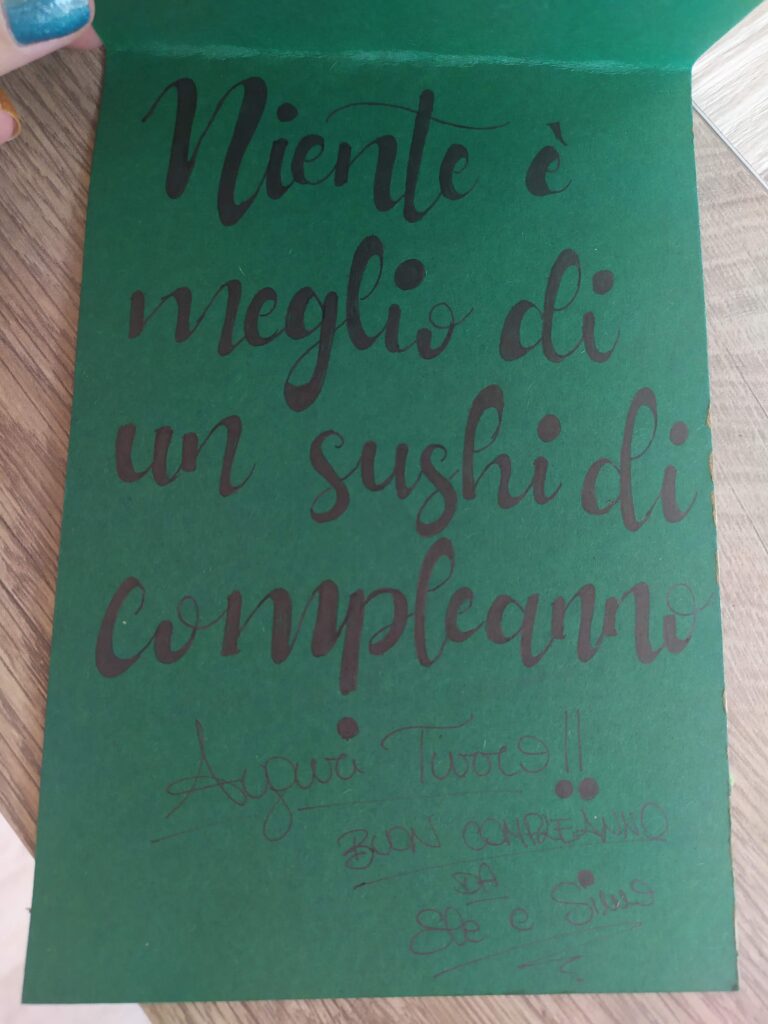 Niente è
meglio di
un sushi di
compleanno
Auguri
BUON COMPLEANNO
DA
Ele e Simo